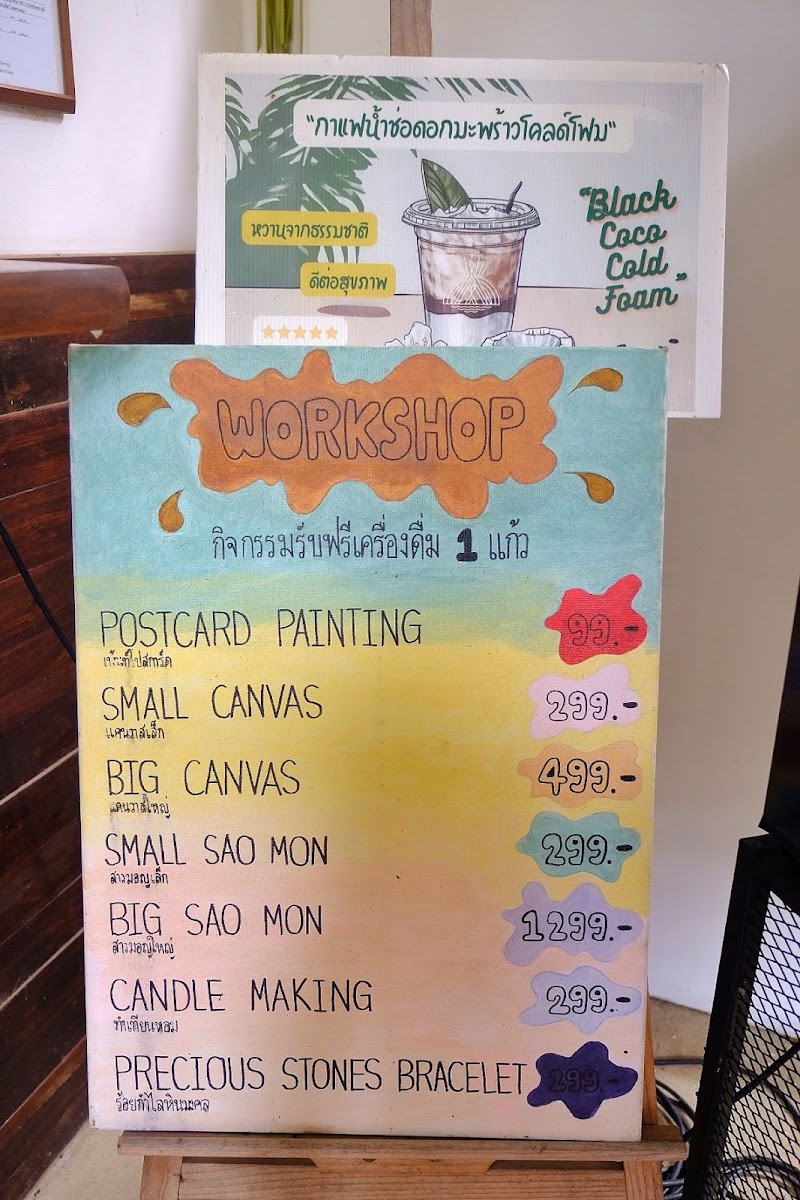 "กาแฟน้ำช่อดอกมะพร้าวโคลด์โฟม"
หวานจากธรรมชาติ
ดีต่อสุขภาพ
"Black
Coco
Cold
Foam"
WORKSHOP
กิจกรรมรับฟรีเครื่องดื่ม 1 แก้ว
POSTCARD PAINTING 99.-
SMALL CANVAS 299.-
แคนวาสเล็ก
BIG CANVAS 499.-
แคนวาสใหญ่
SMALL SAO MON 299.-
สาวมอญเล็ก
BIG SAO MON 1299.-
สาวมอญใหญ่
CANDLE MAKING 299.-
ทำเทียนหอม
PRECIOUS STONES BRACELET 299.-
ร้อยกำไลหินมงคล